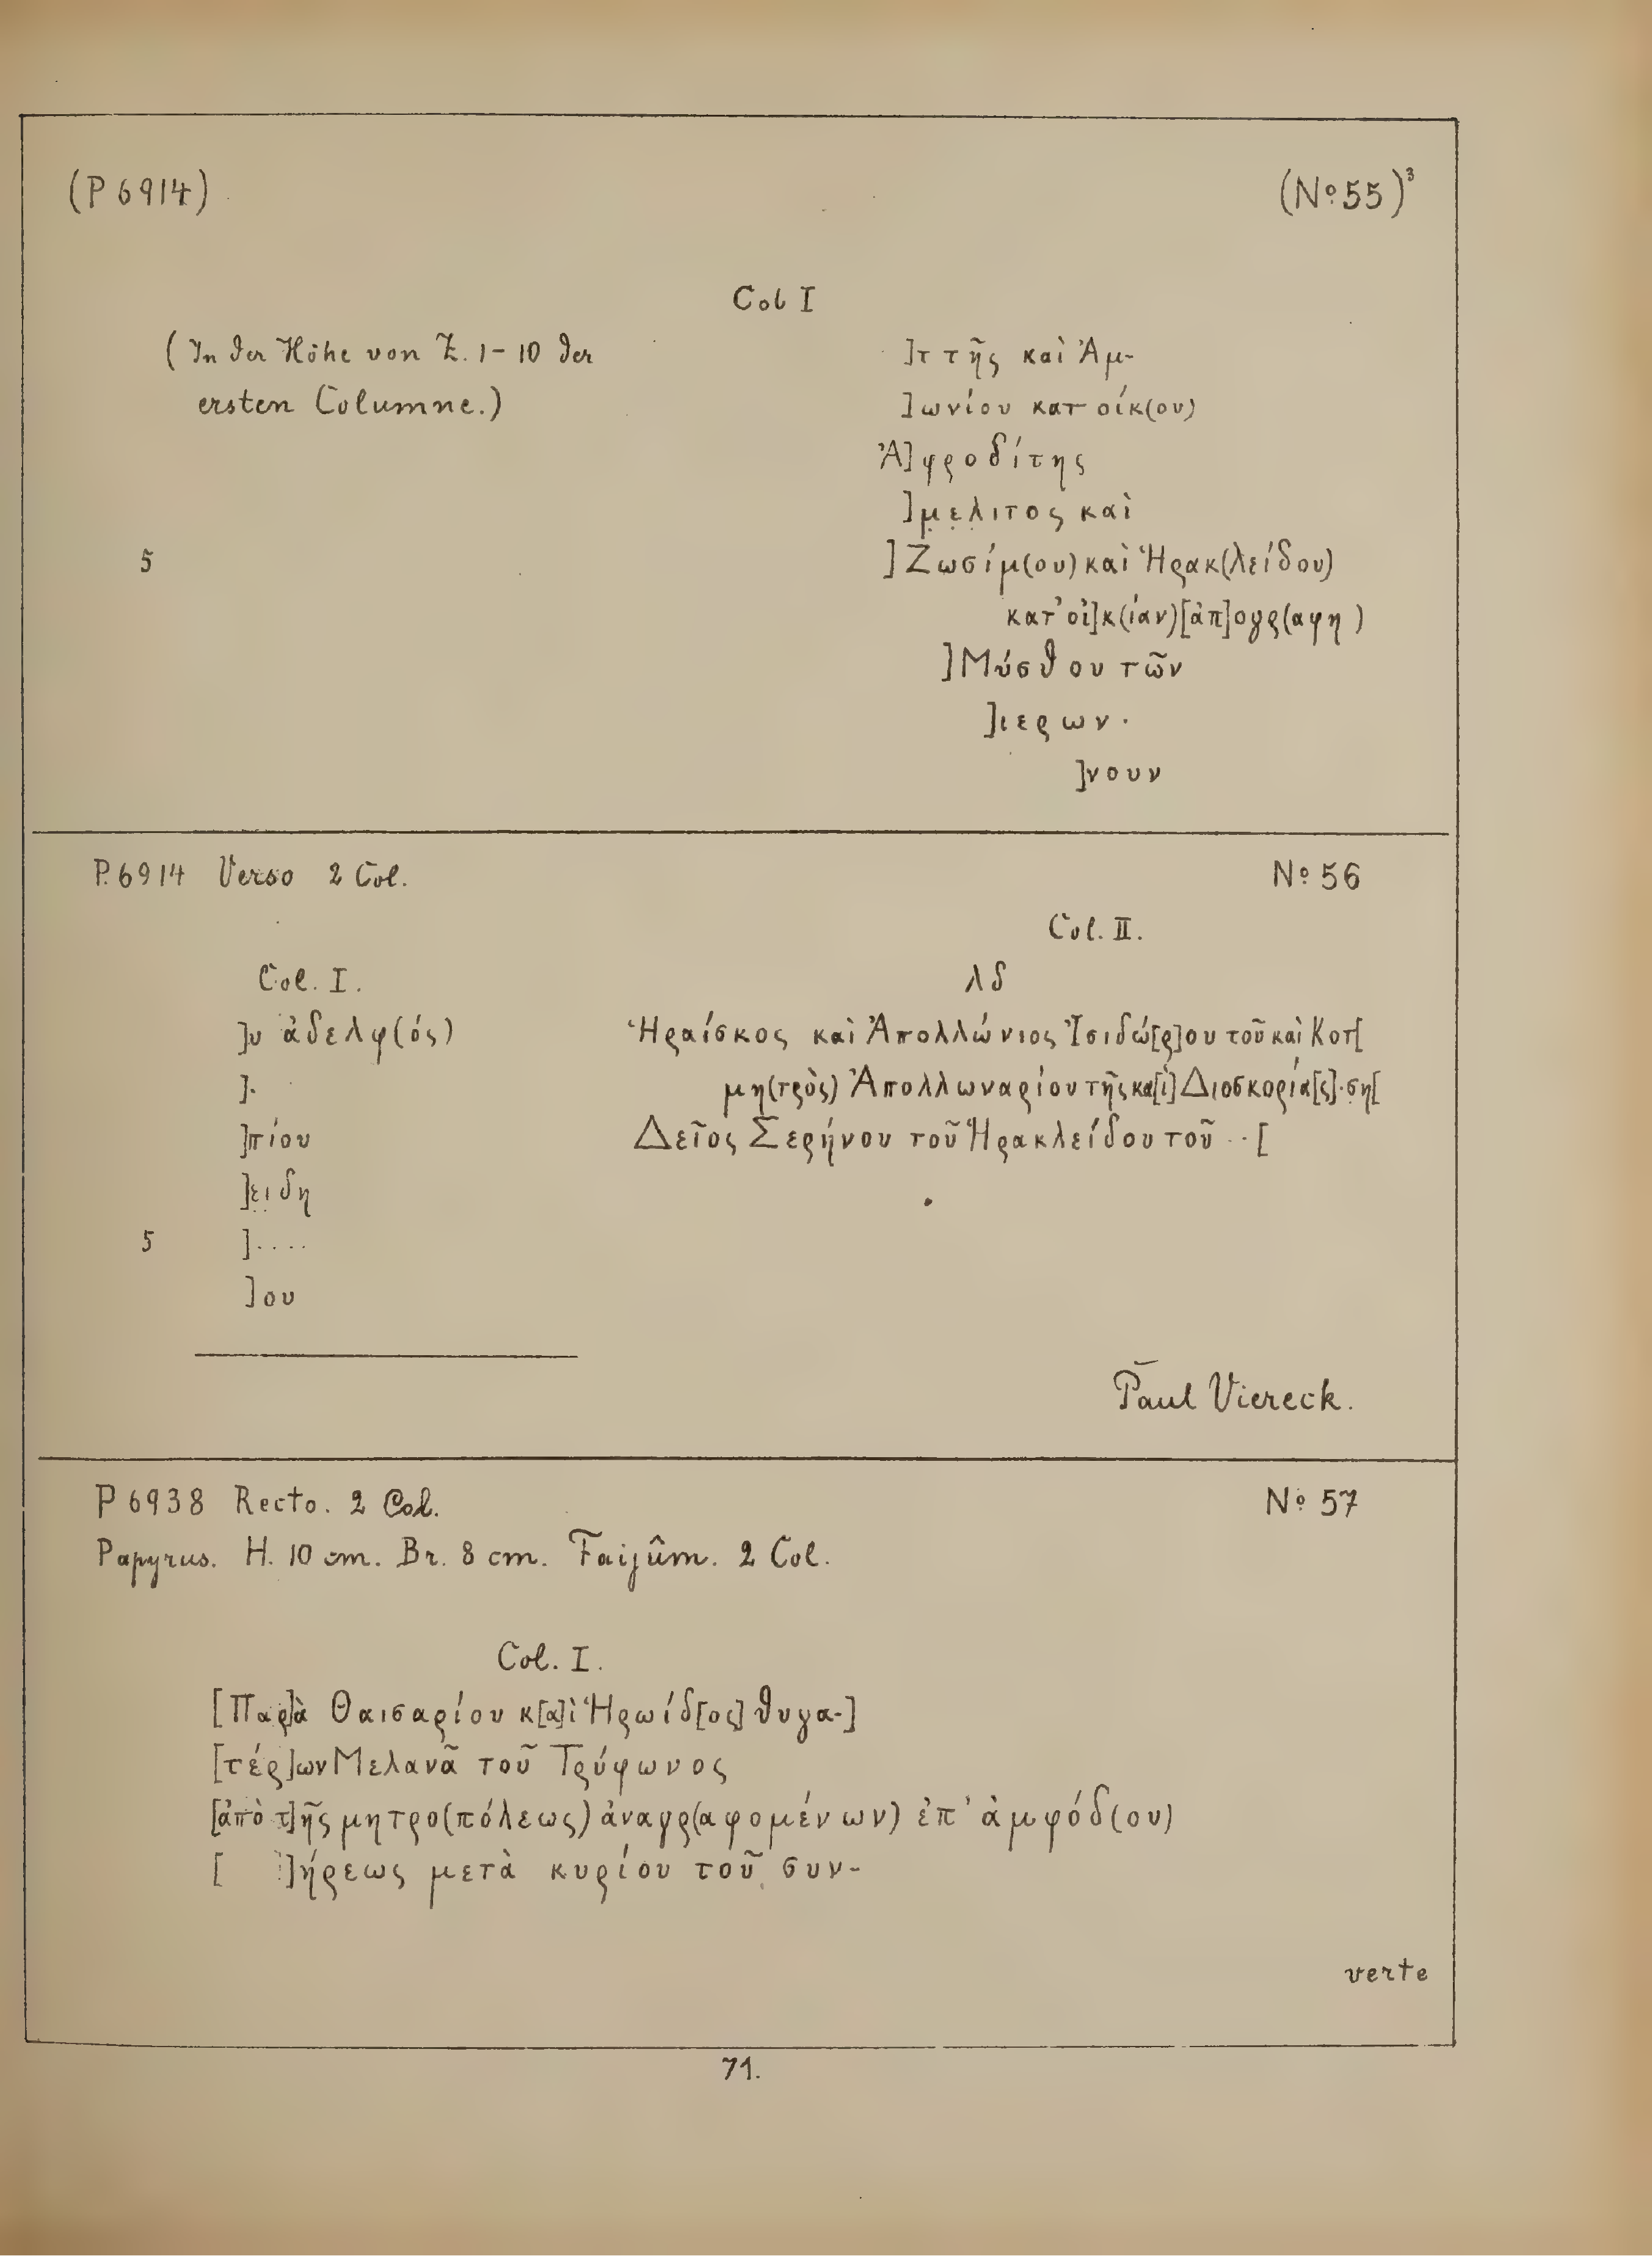 (P 6914)
(No. 55)³
Col I
(In der Höhe von Z. 1-10 der
ersten Columne.)
]τ τῆς καὶ Ἀμ-
]ωνίου κατ οἰκ(ου)
Ἀ]φροδίτης
]μ̣ε̣λ̣ιτος καὶ
5 ]Ζωσίμ(ου) καὶ Ἡρακ(λείδου)
κατ' οἰ]κ(ίαν) [ἀπ]ογρ(αφη )
]Μύσθου τῶν
]ιερων·
]νουν
P. 6914 Verso 2 Col.
No. 56
Col. I.
]υ ἀδελφ(ός)
].
]πίου
]ε̣ι̣δη
5 ]....
]ου
Col. II.
λδ
Ἡραίσκος καὶ Ἀπολλώνιος Ἰσιδώ[ρ]ου τοῦ καὶ Κοτ[
μη(τρὸς) Ἀπολλωναρίου τῆς κα[ὶ] Διοσκορία[ς]·ση[
Δεῖος Σερήνου τοῦ Ἡρακλείδου τοῦ ..[
Paul Viereck.
P 6938 Recto. 2 Col.
No. 57
Papyrus. H. 10 cm. Br. 8 cm. Faijûm. 2 Col.
Col. I.
[Παρ]ὰ Θαισαρίου κ[α]ὶ Ἡρωίδ[ος] θυγα-]
[τέρ]ων Μελανᾶ τοῦ Τρύφωνος
[ἀπὸ τ]ῆς μητρο(πόλεως) ἀναγρ(αφομένων) ἐπ' ἀμφόδ(ου)
[ ]ήρεως μετὰ κυρίου τοῦ συν-
verte
71.